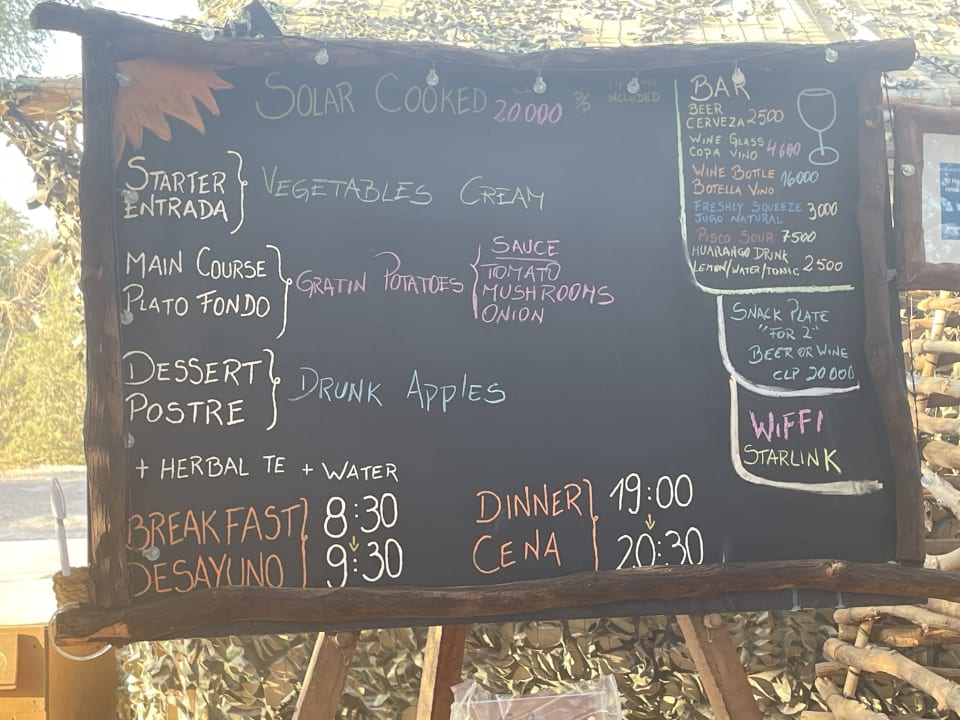 SOLAR COOKED 20.000 INCLUDED
STARTER
ENTRADA
VEGETABLES CREAM
MAIN COURSE
PLATO FONDO
GRATIN POTATOES
SAUCE
TOMATO
MUSHROOMS
ONION
DESSERT
POSTRE
DRUNK APPlES
+ HERBAL TE + WATER
BREAKFAST
DESAYUNO
8:30
9:30
DINNER
CENA
19:00
20:30
BAR
BEER
CERVEZA 2500
WINE GLASS
COPA VINO 4600
WINE BOTLE
BOTELLA VINO 16000
FRESHLY SQUEEZE
JUGO NATURAL 3000
PISCO SOUR 7500
HUARANGO DRINK
LEMON/WATER/TONIC 2500
SNACK PLATE
"FOR 2"
BEER OR WINE
CLP 20.000
WiFFI
STARLINK